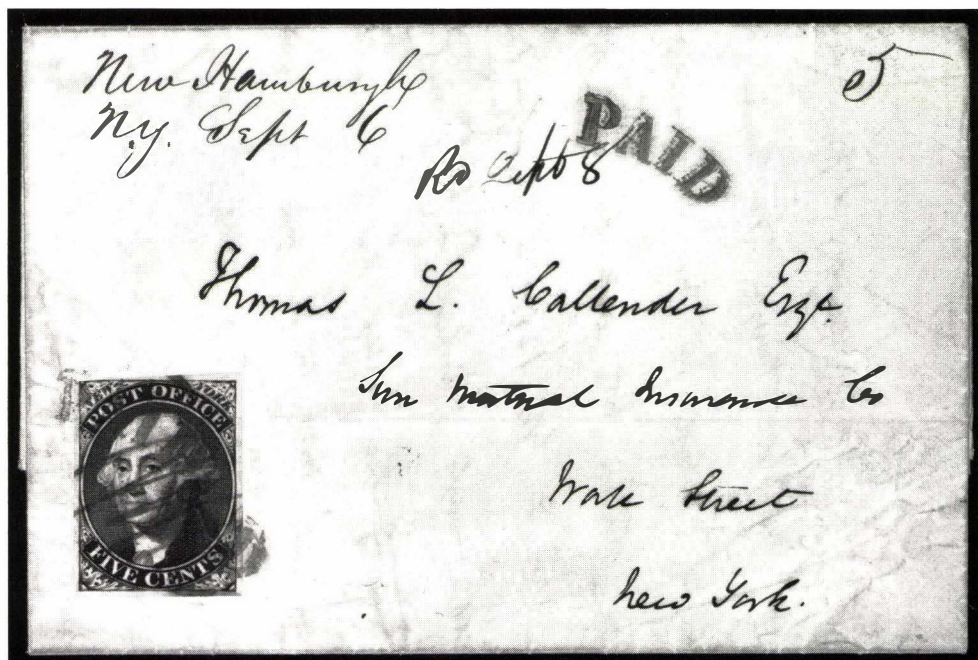 New Hamburgh
N.Y. Sept 6
5
PAID
Rd Sept 8
Thomas L. Callender Esqr.
Sun Mutual Insurance Co
Wall Street
New York.
POST OFFICE
FIVE CENTS